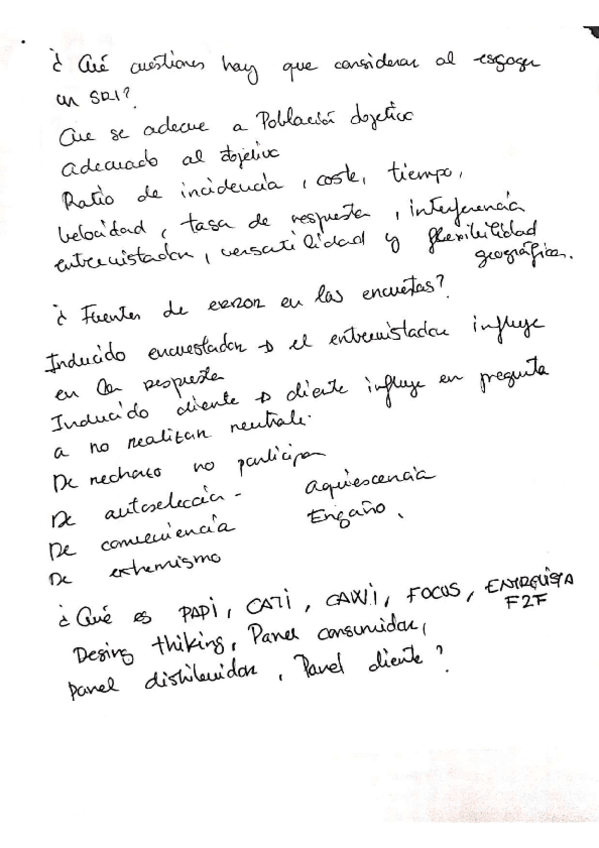 ¿ Qué cuestiones hay que considerar al escoger
un SRI?
Que se adecue a Población objetivo
Adecuado al objetivo
Ratio de incidencia, coste, tiempo,
velocidad, tasa de respuesta, interferencia
entrevistador, versatilidad y flexibilidad
geográfica.
¿ Fuentes de error en las encuestas?
Inducido encuestador → el entrevistador influye
en la respuesta
Inducido cliente → cliente influye en pregunta
a no realizar neutrale.
De rechazo no participa
De autoselección - aquiescencia
De conveniencia Engaño.
De extremismo
¿ Qué es PAPI, CATI, CAWI, FOCUS, ENTREVISTA
F2F
Desing thiking, Panel consumidor,
panel distribuidor, Panel cliente?